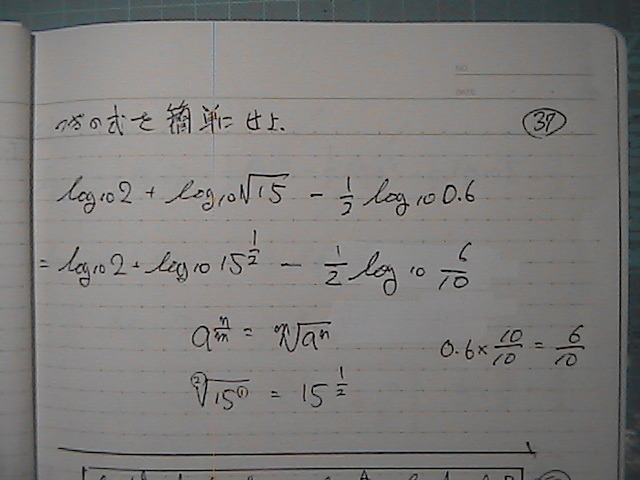 NO.
DATE
次の式を簡単にせよ. 37
log₁₀2 + log₁₀√15 − 1/2 log₁₀0.6
= log₁₀2 + log₁₀15^(1/2) − 1/2 log₁₀ 6/10
a^(n/m) = ᵐ√aⁿ
0.6 × 10/10 = 6/10
²√15① = 15^(1/2)